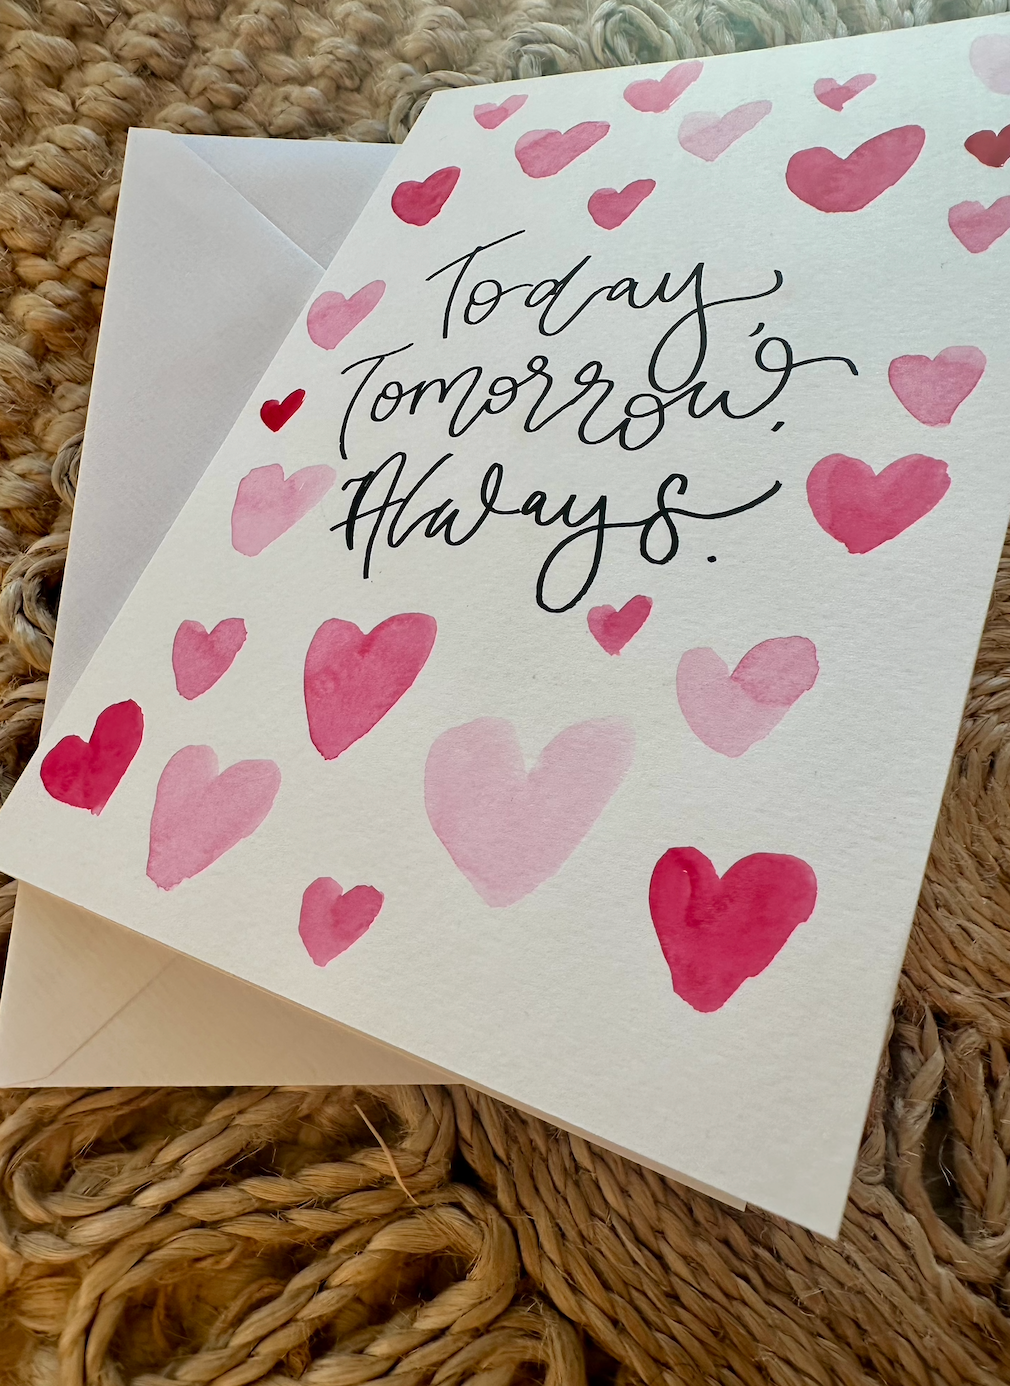 Today,
Tomorrow, &
Always.